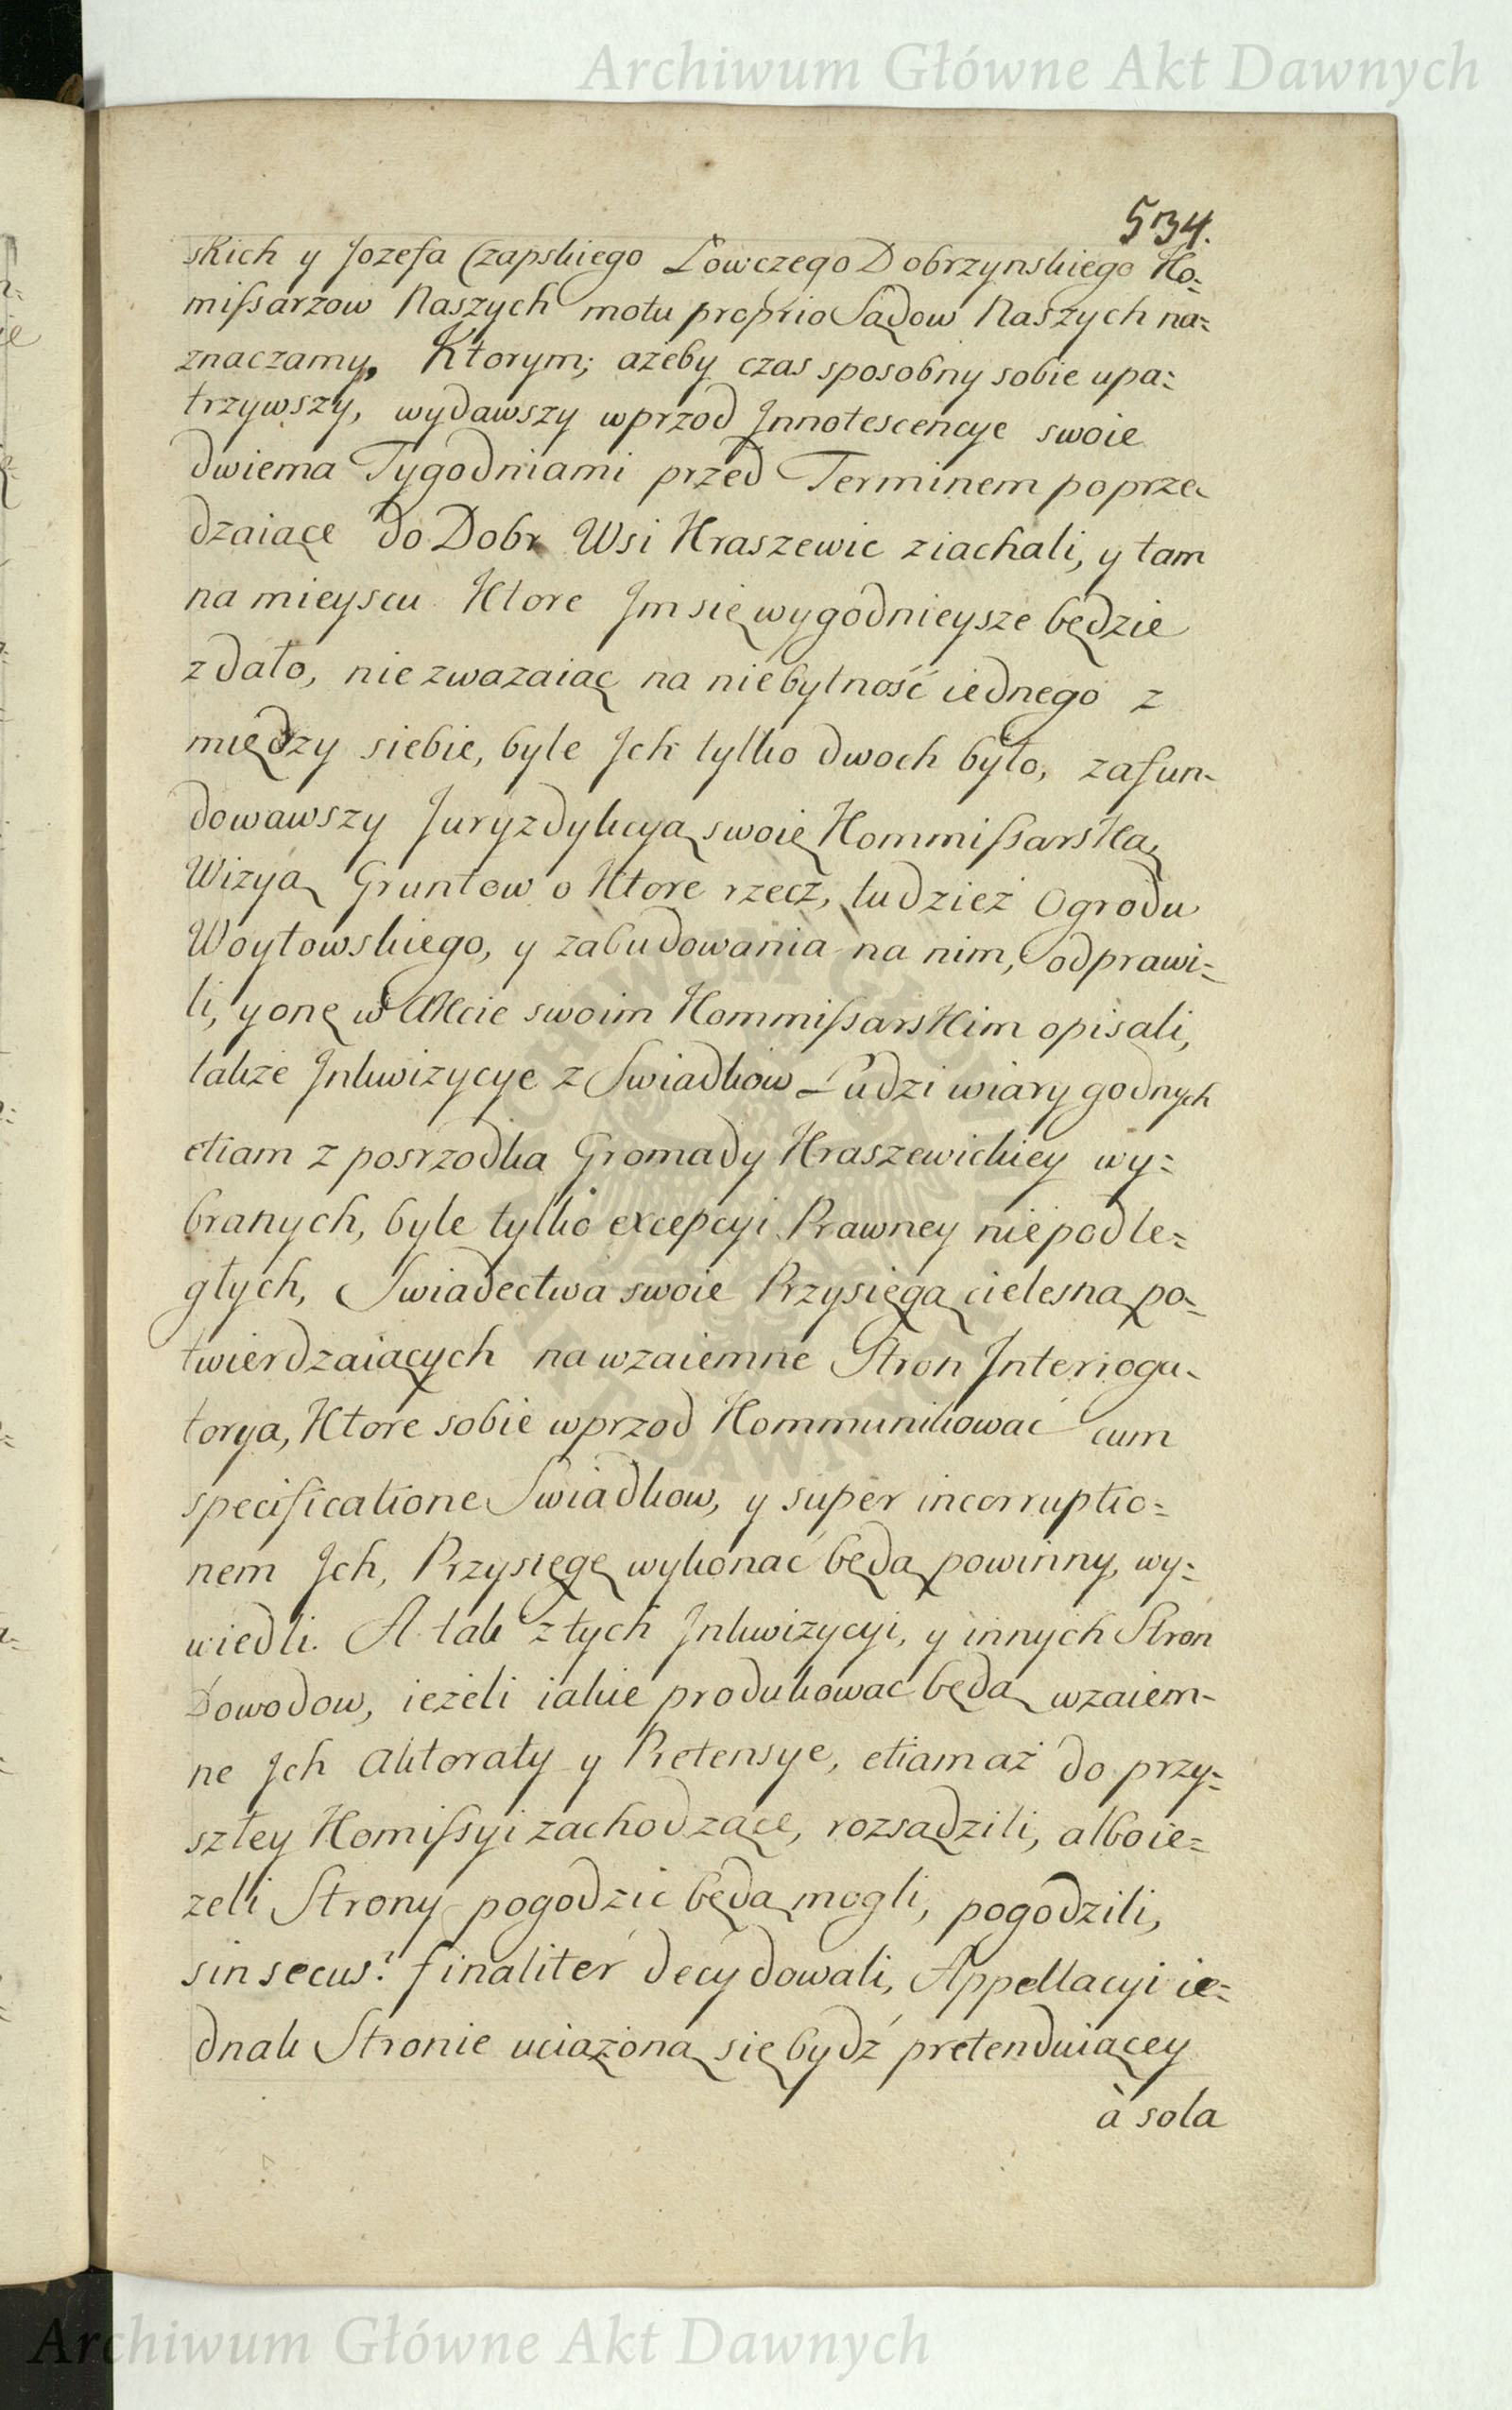 Archiwum Główne Akt Dawnych
534.
skich y Jozefa Czapskiego Łowczego Dobrzynskiego Ko=
missarzow Naszych motu proprio Sądow Naszych na=
znaczamy, Ktorym; azeby czas sposobny sobie upa=
trzywszy, wydawszy wprzod Innotescencye swoie
dwiema Tygodniami przed Terminem poprze-
dzaiące do Dobr Wsi Kraszewic ziachali, y tam
na mieyscu Ktore Im się wygodnieysze będzie
zdało, nie zwazaiąc na niebytność iednego z
między siebie, byle Ich tylko dwoch było, zafun-
dowawszy Juryzdykcyą swoię Kommissarską,
Wizyą Gruntow o Ktore rzecz, tudzież Ogrodu
Woytowskiego, y zabudowania na nim, odprawi=
li, y onę w Akcie swoim Kommissarskim opisali,
takze Inkwizycye z Swiadkow Ludzi wiary godnych
etiam z posrzodka Gromady Kraszewickiey wy=
branych, byle tylko excepcyi Prawney niepodle=
głych, Swiadectwa swoie Przysięgą cielesną po=
twierdzaiących na wzaiemne Stron Interroga-
torya, Ktore sobie wprzod Kommunikować cum
specificatione Swiadkow, y super incorruptio=
nem Ich, Przysięgę wykonać będą powinny, wy=
wiedli. A tak z tych Inkwizycyi, y innych Stron
Dowodow, ieżeli iakie produkować będą wzaiem-
ne Ich Aktoraty y Pretensye, etiam aż do przy=
szłey Komissyi zachodzące, rozsądzili, albo ie=
zeli Strony pogodzić będą mogli, pogodzili,
sin secus: finaliter decydowali, Appellacyi ie=
dnak Stronie uciążoną się bydź pretenduiącey
à sola
Archiwum Główne Akt Dawnych